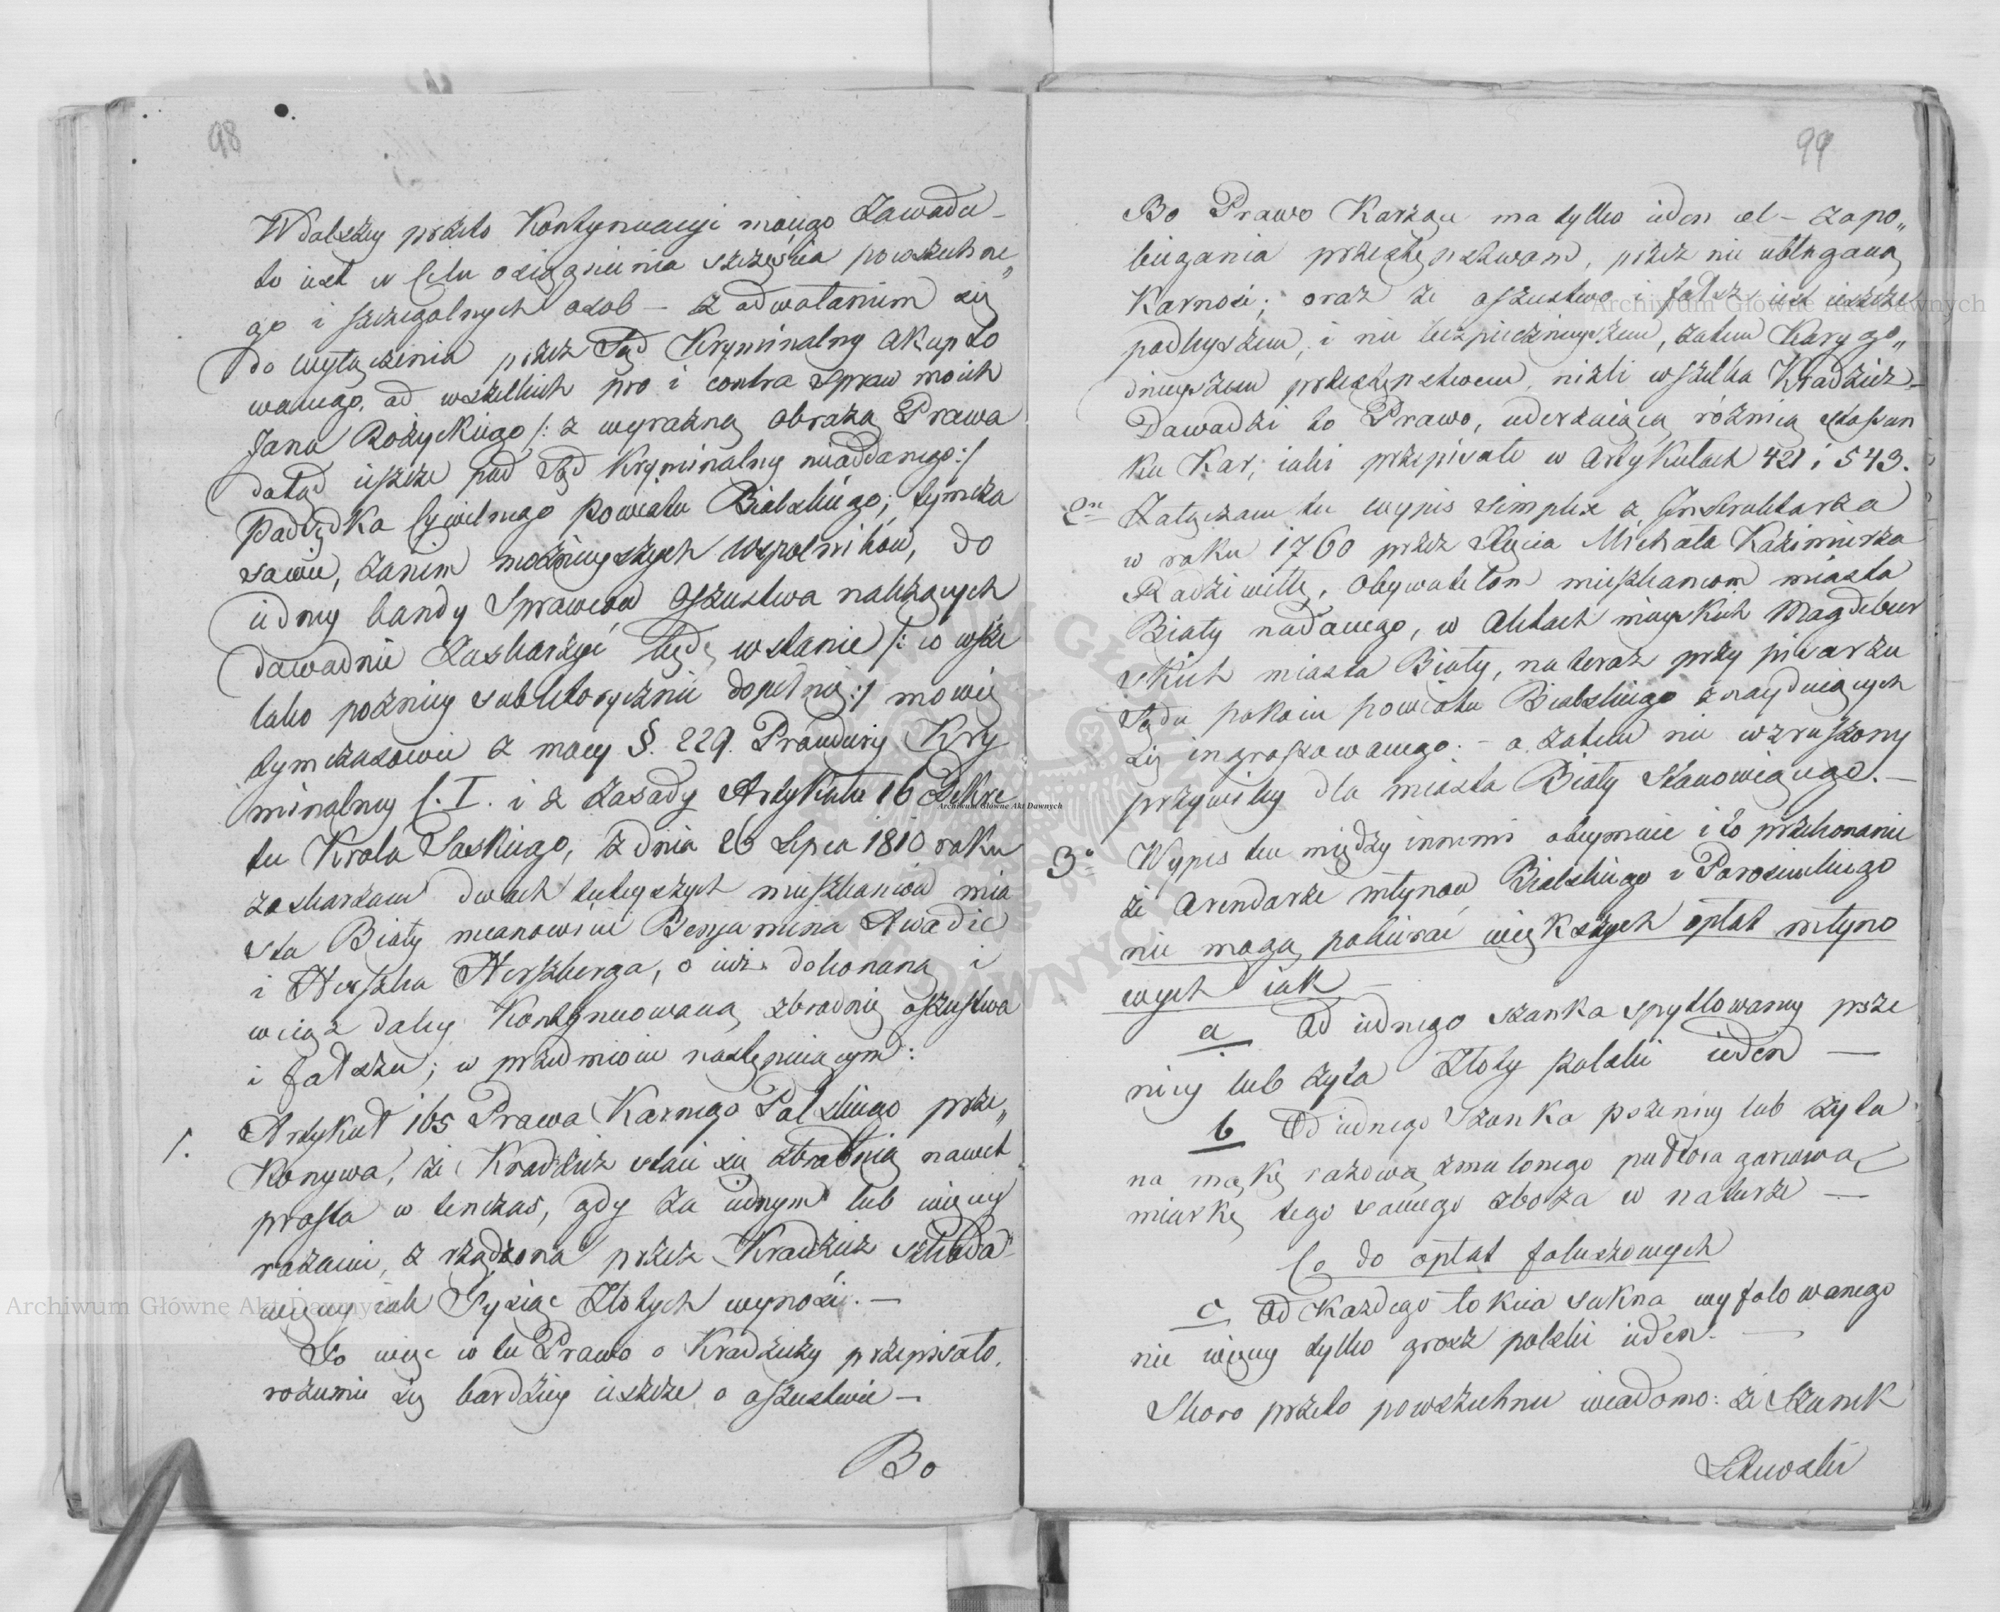 98
W dalszey przeto Kontynuacyi moiego Zawodu –
to iest w Celu osiągnienia szczęścia powszechne„
go i szczegolnych osob – z odwołaniem się
do wyłączenia przez Sąd Kryminalny akcepto
wanego, od wszelkich pro i contra spraw moich
Jana Rożyckiego /: z wyrażną obrazą Prawa
dotąd ieszcze pod Sąd Kryminalny nieoddanego :/
Podsędka Cywilnego Powiatu Bialskiego; tymcza
sowie, zanim możnieyszych wspolników, do
iedney bandy Sprawców oszustwa należących
dowodnie Zaskarżyć będę w stanie /: co wsze
lako pożniey subletorycznie dopełnię :/ mowię
tymczasowie z mocy §. 229. Procedury Kry
minalney C. I. i z zasady Artykułu 16 Dekre
tu Krola Saskiego, z dnia 26 Lipca 1810 roku
zaskarżam dwóch tuteyszych mieszkańców mia
sta Biały mianowicie Benjamina Awadie
i Herszka Herszberga, o iuż dokonaną i
wciąż daley Kontynuowaną zbrodnię oszustwa
i fałszu; w przedmiocie następuiącym:
1. Artykuł 165 Prawa Karnego Polskiego prze„
konywa, że Kradzież staie się zbrodnią nawet
prosta w tenczas, gdy za iednym lub więcey
razami, zrządzona przez Kradzież szkoda
więcey iak Tysiąc Złotych wynosi. –
To więc co tu Prawo o Kradzieży przepisało,
rozumie się bardziey ieszcze o oszustwie –
Bo
99
Bo Prawo Karzące ma tylko ieden cel – zapo„
biegania przestępstwom, przez nie ubłaganą
Karność; oraz że oszustwo i fałsz iest ieszcze
podleyszem, i nie bezpiecznieyszem, zatem Karygo„
dnieyszem przestępstwem, niżli wszelka Kradzież –
Dowodzi to Prawo, uderzaiącą różnicą stosun
ku Kar, iaki przepisało w Artykułach 421 i 543.
2re Załączam tu wypis simplex z Instruktarza
w roku 1760 przez Xięcia Michała Kazimirza
Radziwiłłę, Obywatelom mieszkańcom miasta
Biały nadanego, w Aktach mieyskich Magdebur
skich miasta Biały, na teraz przy pisarzu
Sądu pokoiu powiatu Bialskiego znayduiących
się ingrossowanego. – a zatem nie wzruszony
przywiley dla miasta Biały stanowiącego. –
3o Wypis ten między innemi obeymuie i to przekonanie
że Arendarze młynów Bialskiego i Porosiuckiego
nie mogą pobierać większych opłat młyno
wych iak –
a Od iednego szanka spytlowaney psze
nicy lub żyta Złoty polski ieden –
b Od iednego Szanka pszenicy lub żyta
na mąkę razową zmielonego pułtora garcową
miarkę tego samego zboża w naturze –
Co do opłat foluszowych
c Od Każdego łokcia sukna wyfolowanego
nie więcey tylko grosz polski ieden. –
Skoro przeto powszechnie wiadomo: że Szanek
Litewski
Archiwum Główne Akt Dawnych